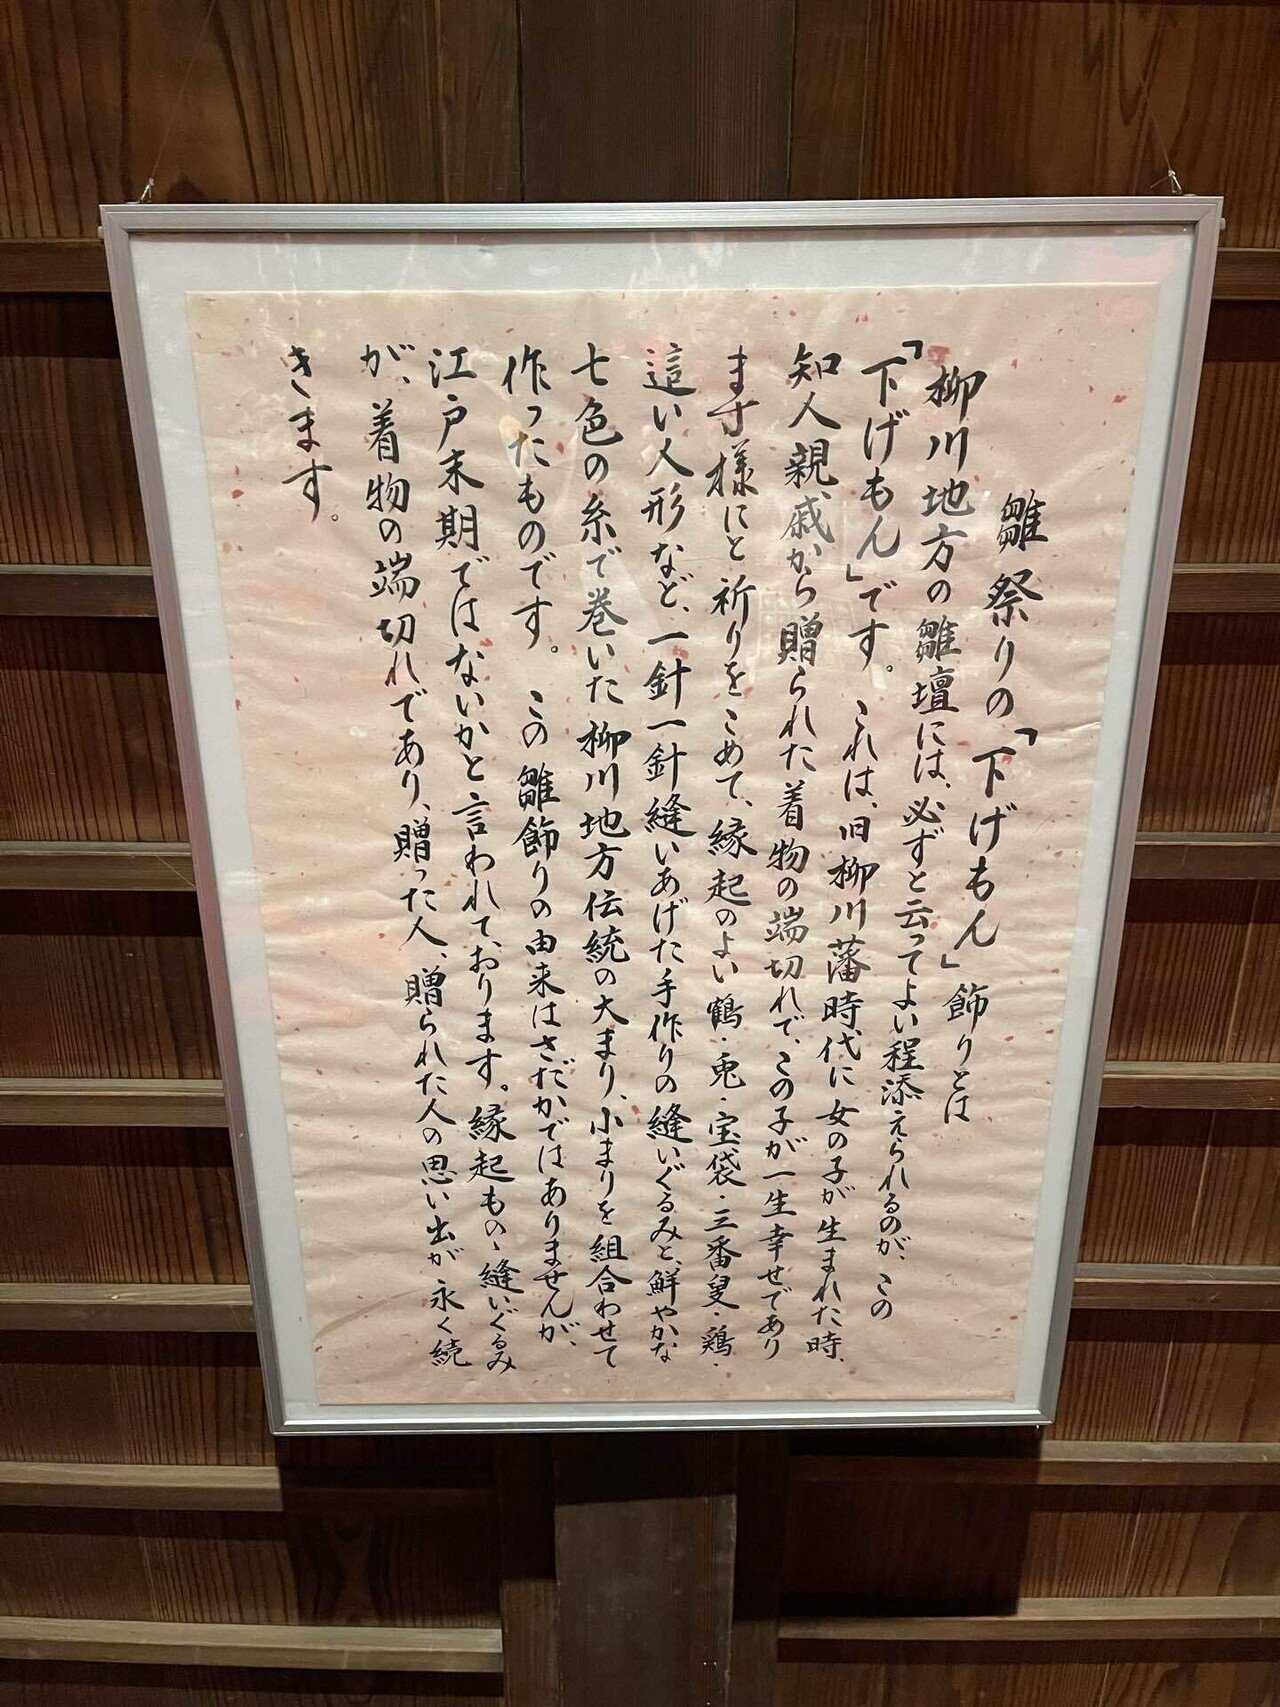 雛祭りの「下げもん」飾りとは
柳川地方の雛壇には、必ずと云ってよい程添えられるのが、この
「下げもん」です。これは、旧柳川藩時代に女の子が生まれた時、
知人親戚から贈られた着物の端切れで、この子が一生幸せであり
ます様にと祈りをこめて、縁起のよい鶴・兎・宝袋・三番叟・鶏・
這い人形など、一針一針縫いあげた手作りの縫いぐるみと、鮮やかな
七色の糸で巻いた柳川地方伝統の大まり、小まりを組合わせて
作ったものです。この雛飾りの由来はさだかではありませんが、
江戸末期ではないかと言われて、おります。縁起もの、縫いぐるみ
が、着物の端切れであり、贈った人、贈られた人の思い出が永く続
きます。